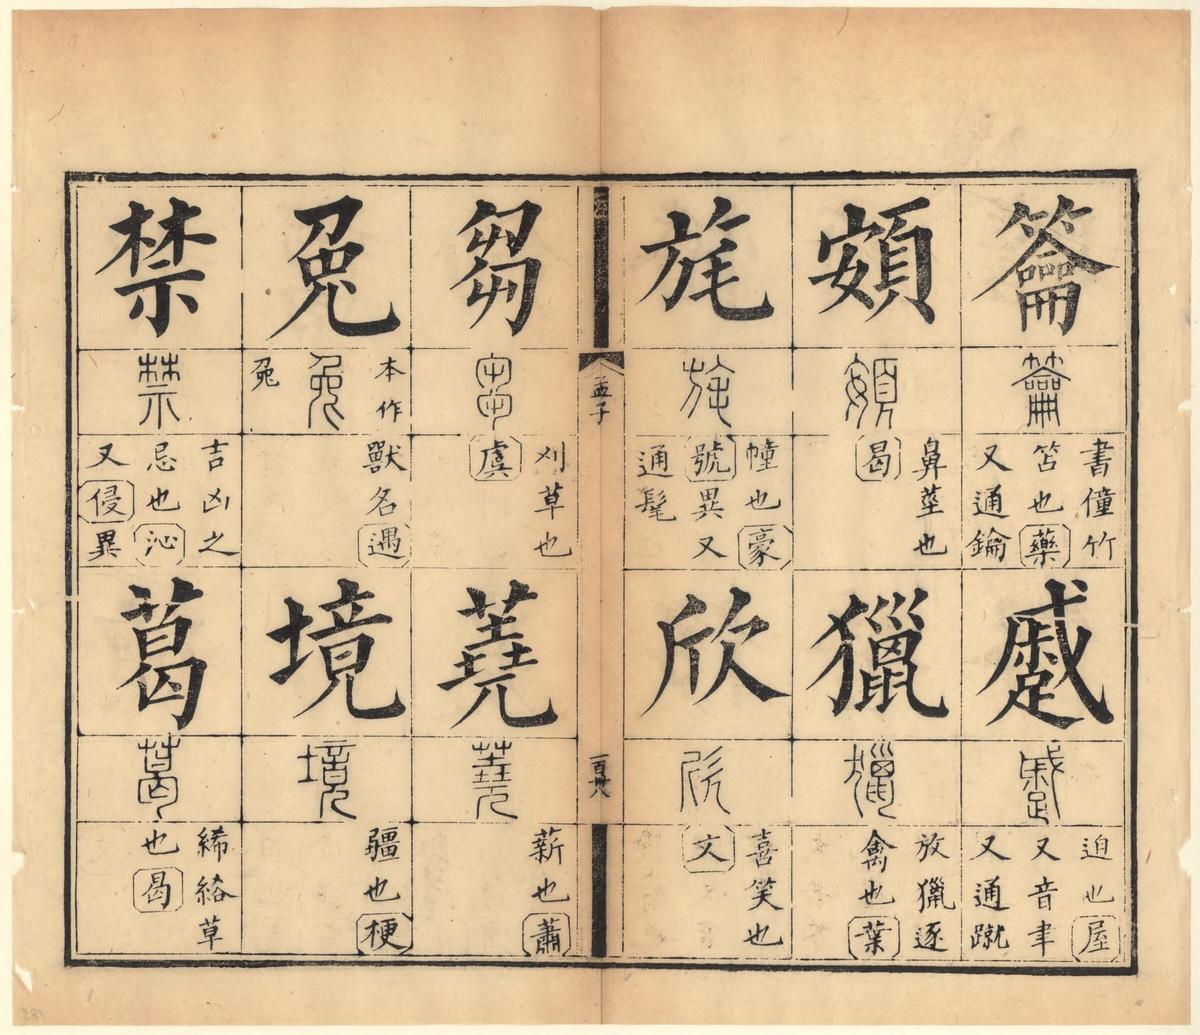 籥
籥
書僮竹
笘也藥
又通鑰
蹙
蹙
迫也屋
又音聿
又通蹴
頞
頞
鼻莖也
曷
獵
獵
放獵逐
禽也葉
旄
旄
幢也豪
號異又
通髦
欣
欣
喜笑也
文
孟子
芻
芻
刈草也
虞
蕘
蕘
薪也
蕭
兔
本作
兔
兔
獸名遇
境
境
疆也
梗
禁
禁
吉凶之
忌也沁
又侵異
葛
葛
絺綌草
也曷